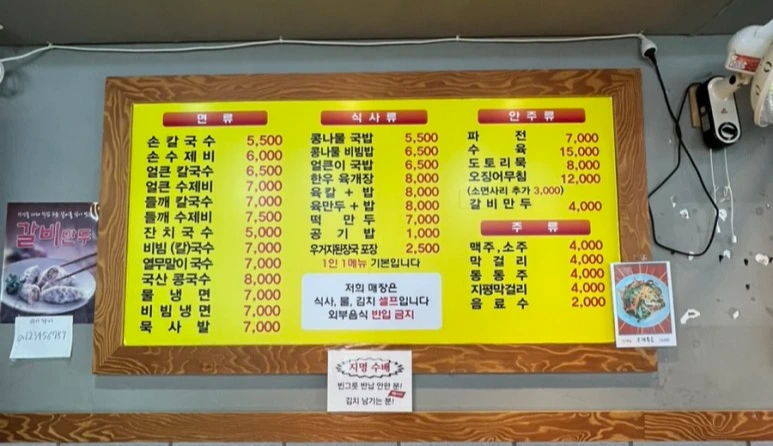 면 류
손 칼 국 수 5,500
손 수 제 비 6,000
얼큰 칼국수 6,500
얼큰 수제비 7,000
들깨 칼국수 7,000
들깨 수제비 7,500
잔 치 국 수 5,000
비빔 (칼)국수 7,000
열무말이 국수 7,000
국산 콩국수 8,000
물 냉 면 7,000
비 빔 냉 면 7,000
묵 사 발 7,000
식 사 류
콩나물 국밥 5,500
콩나물 비빔밥 6,500
얼큰이 국밥 6,500
한우 육개장 8,000
육칼 + 밥 8,000
육만두 + 밥 8,000
떡 만 두 7,000
공 기 밥 1,000
우거지된장국 포장 2,500
1인 1메뉴 기본입니다
저희 매장은
식사, 물, 김치 셀프입니다
외부음식 반입 금지
안 주 류
파 전 7,000
수 육 15,000
도 토 리 묵 8,000
오징어무침 12,000
(소면사리 추가 3,000)
갈 비 만 두 4,000
주 류
맥주,소주 4,000
막 걸 리 4,000
동 동 주 4,000
지평막걸리 4,000
음 료 수 2,000
갈비만두
지명 수배
빈그릇 반납 안한 분!
김치 남기는 분!